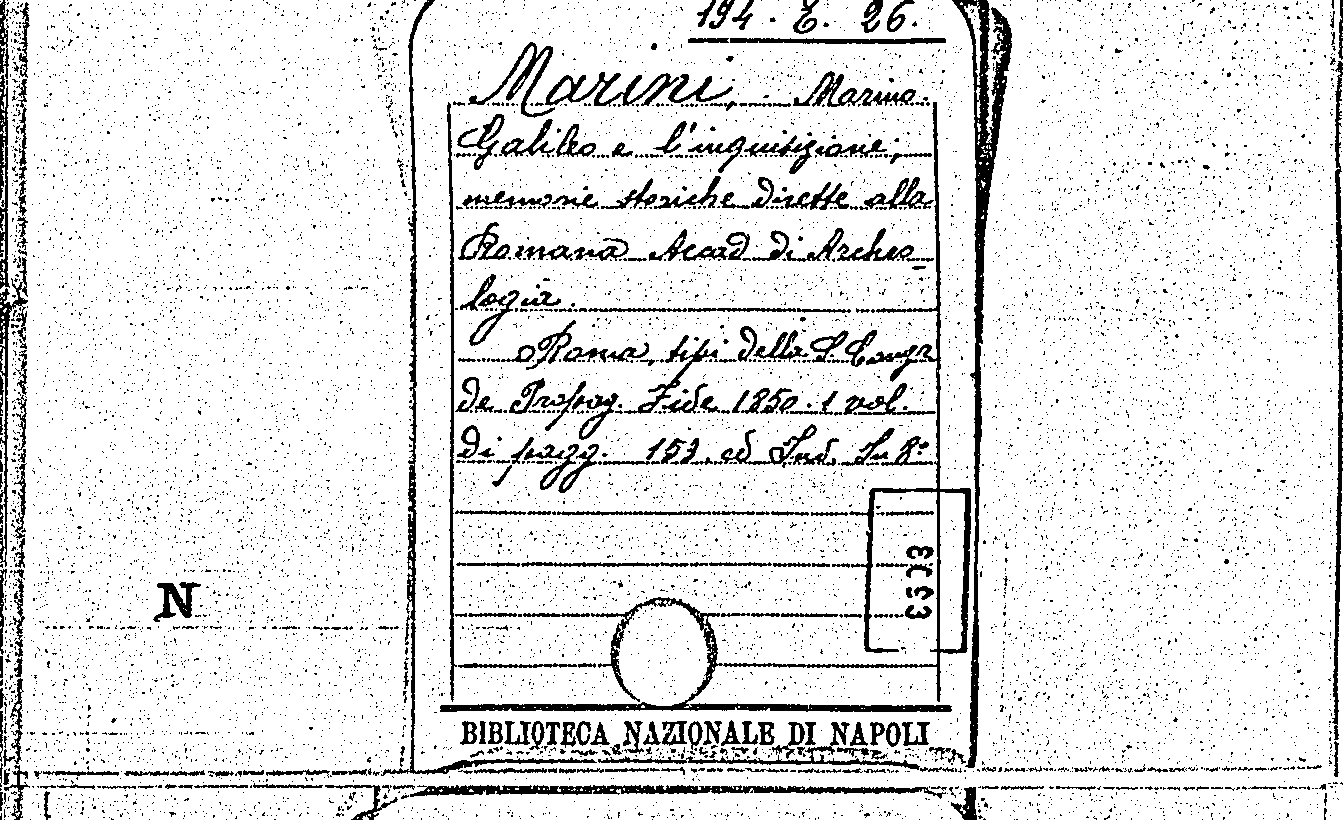 194. E. 26.
Marini, Marino.
Galileo e l'inquisizione;
memorie storiche dirette alla
Romana Accad di Archeo
logia.
Roma, tipi della S. Congr
de Propag. Fide 1850. 1 vol.
di pagg. 153. ed Ind. In 8°
N
BIBLIOTECA NAZIONALE DI NAPOLI